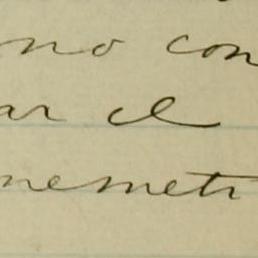 no con
ar el
nemetr